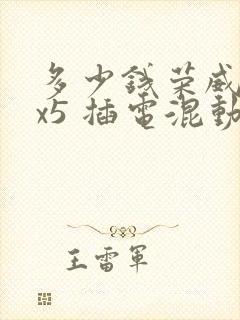 多少錢荣威
x5 插電混動
王雷軍